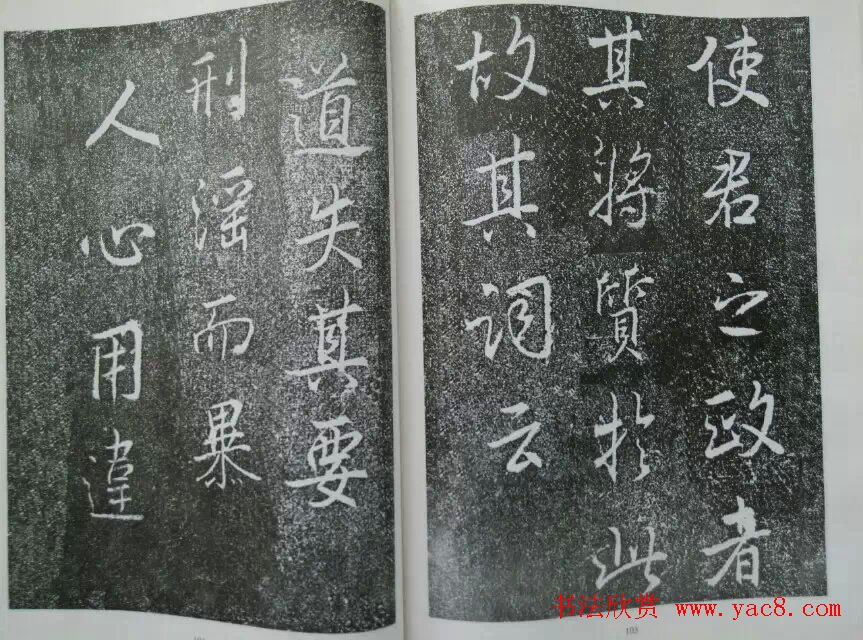 使君之政者
其將質於此
故其詞云
道失其要
刑淫而暴
人心用違
书法欣赏 www.yac8.com
103